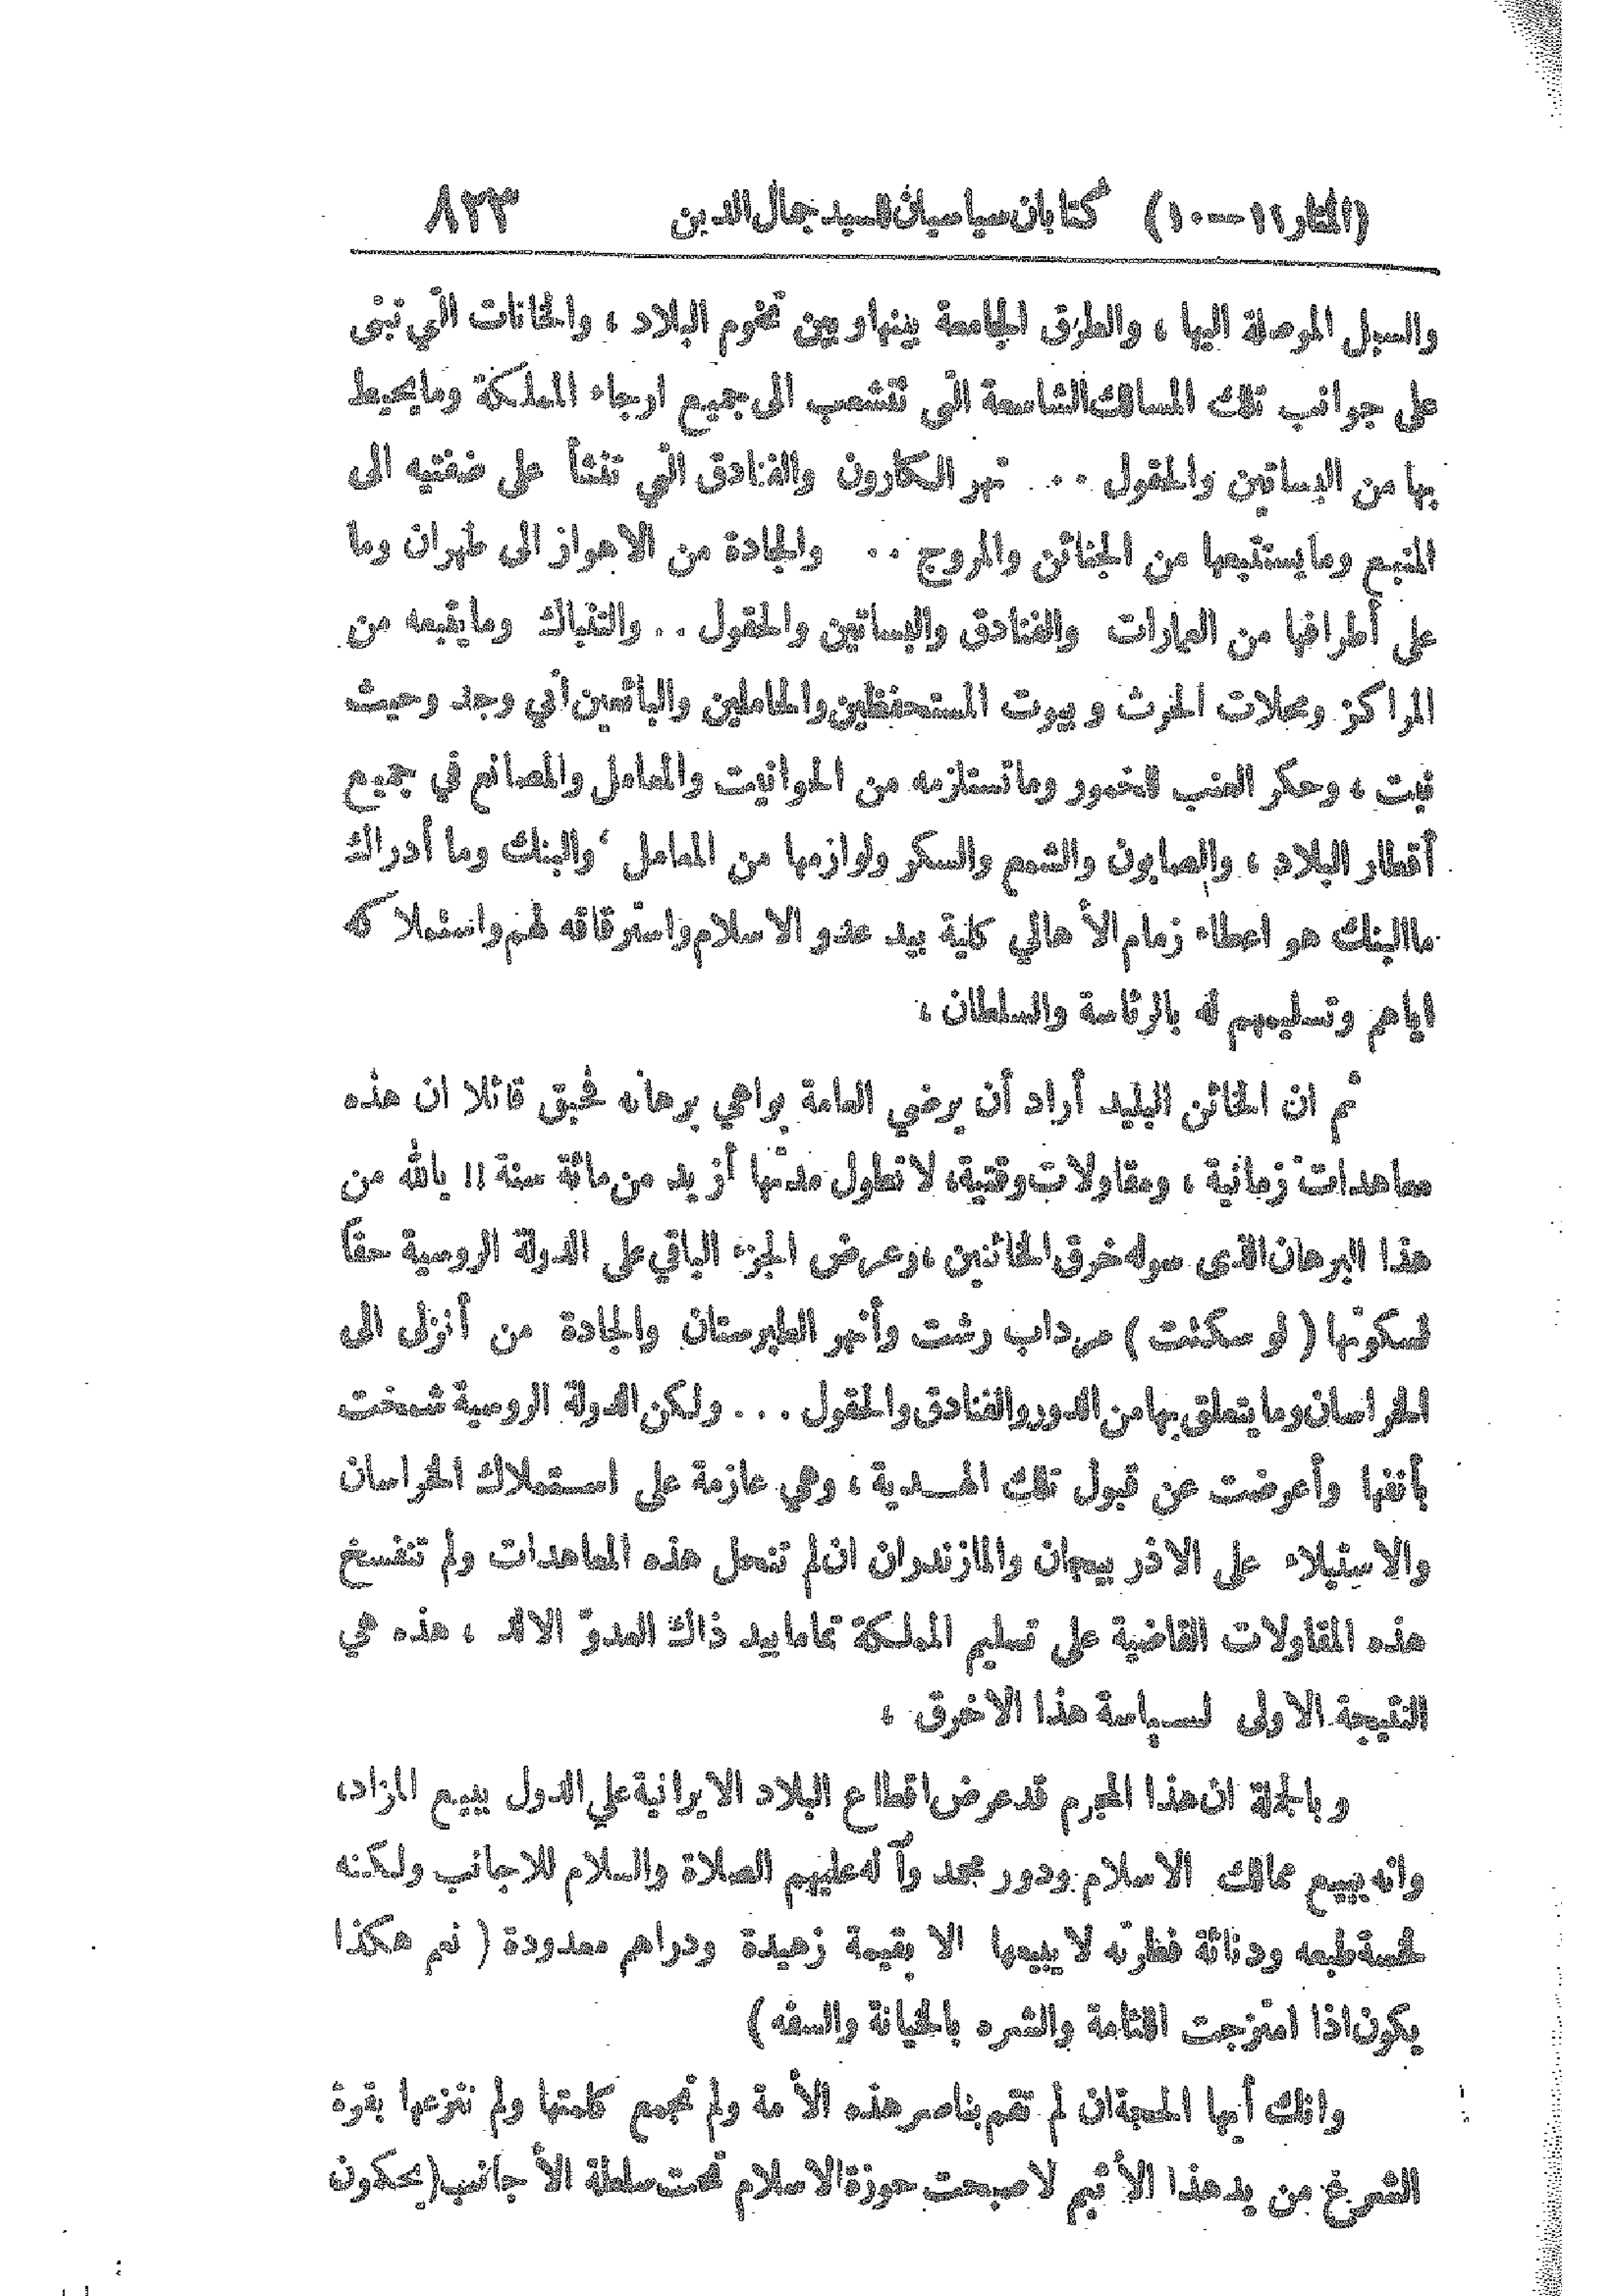 (المنار ١١ — ١٠) كتابان سياسيان للسيد جمال الدين ٨٢٣
والسبل الموصلة اليها ، والطرق الجامعة بينها وبين تخوم البلاد ، والخانات التي تبنى
على جوانب تلك المسالك الشاسعة التي تتشعب الى جميع ارجاء المملكة وما يحيط
بها من البساتين والحقول . . نهر الكارون والفنادق التي تنشأ على ضفتيه الى
المنبع وما يستتبعها من الجنائن والمروج . . والجادة من الاهواز الى طهران وما
على أطرافها من العمارات والفنادق والبساتين والحقول . . والتنباك وما يتبعه من
المراكز ومحلات الحرث وبيوت المستحفظين والحاملين والبائعين أنى وجد وحيث
نبت ، وحكر العنب للخمور وما تستلزمه من الحوانيت والمعامل والمصانع في جميع
أقطار البلاد ، والصابون والشمع والسكر ولوازمها من المعامل ، والبنك وما أدراك
ما البنك هو اعطاء زمام الأهالي كلية بيد عدو الاسلام واسترقاقه لهم واستملاكه
اياهم وتسليمهم له بالرئاسة والسلطان ،
ثم ان الخائن البليد أراد أن يرضي العامة بواهي برهانه فحبق قائلا ان هذه
معاهدات زمانية ، ومقاولات وقتية ، لا تطول مدتها أزيد من مائة سنة !! يالله من
هذا البرهان الذى سوله خرق الخائنين ، وعرض الجزء الباقي على الدولة الروسية حقاً
لسكوتها ( لو سكتت ) مرداب رشت وأنهر الطبرستان والجادة من أنزلى الى
الخراسان وما يتعلق بها من الدور والفنادق والحقول . . . ولكن الدولة الروسية شمخت
بأنفها وأعرضت عن قبول تلك الهدية ، وهي عازمة على استملاك الخراسان
والاستيلاء على الاذربيجان والمازندران ان لم تنحل هذه المعاهدات ولم تنفسخ
هذه المقاولات القاضية على تسليم المملكة تماما بيد ذاك العدوّ الالد ، هذه هي
النتيجة الاولى لسياسة هذا الاخرق ،
وبالجملة ان هذا المجرم قد عرض اقطاع البلاد الايرانية على الدول ببيع المزاد ،
وانه يبيع ممالك الاسلام ودور محمد وآله عليهم الصلاة والسلام للاجانب ولكنه
لخسة طبعه ودنائة فطرته لا يبيعها الا بقيمة زهيدة ودراهم معدودة ( نعم هكذا
يكون اذا امتزجت اللئامة والشره بالخيانة والسفه )
وانك أيها الحجة ان لم تقم بناصر هذه الأمة ولم تجمع كلمتها ولم تنزعها بقوة
الشرع من يد هذا الأثيم لاصبحت حوزة الاسلام تحت سلطة الأجانب ( يحكمون